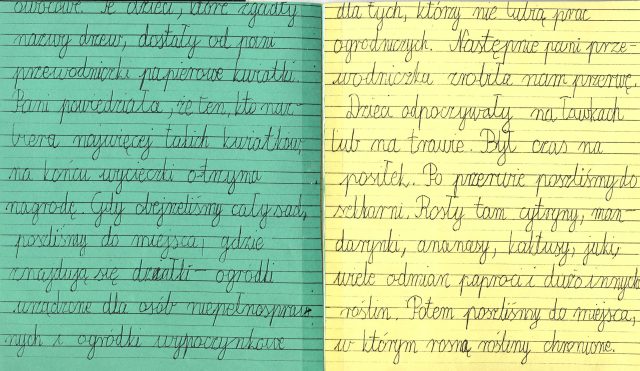 owocowe. Te dzieci, które zgadły
nazwy drzew, dostały od pani
przewodniczki papierowe kwiatki.
Pani powiedziała, że ten, kto naz-
biera najwięcej takich kwiatków,
na końcu wycieczki otrzyma
nagrodę. Gdy obejrzeliśmy cały sad,
poszliśmy do miejsca, gdzie
znajdują się działki - ogródki
urządzone dla osób niepełnospraw-
nych i ogródki wypoczynkowe
dla tych, którzy nie lubią prac
ogrodniczych. Następnie pani prze-
wodniczka zrobiła nam przerwę.
Dzieci odpoczywały na ławkach
lub na trawie. Był czas na
posiłek. Po przerwie poszliśmy do
szklarni. Rosły tam cytryny, man-
darynki, ananasy, kaktusy, juki,
wiele odmian paproci i dużo innych
roślin. Potem poszliśmy do miejsca,
w którym rosną rośliny chronione.